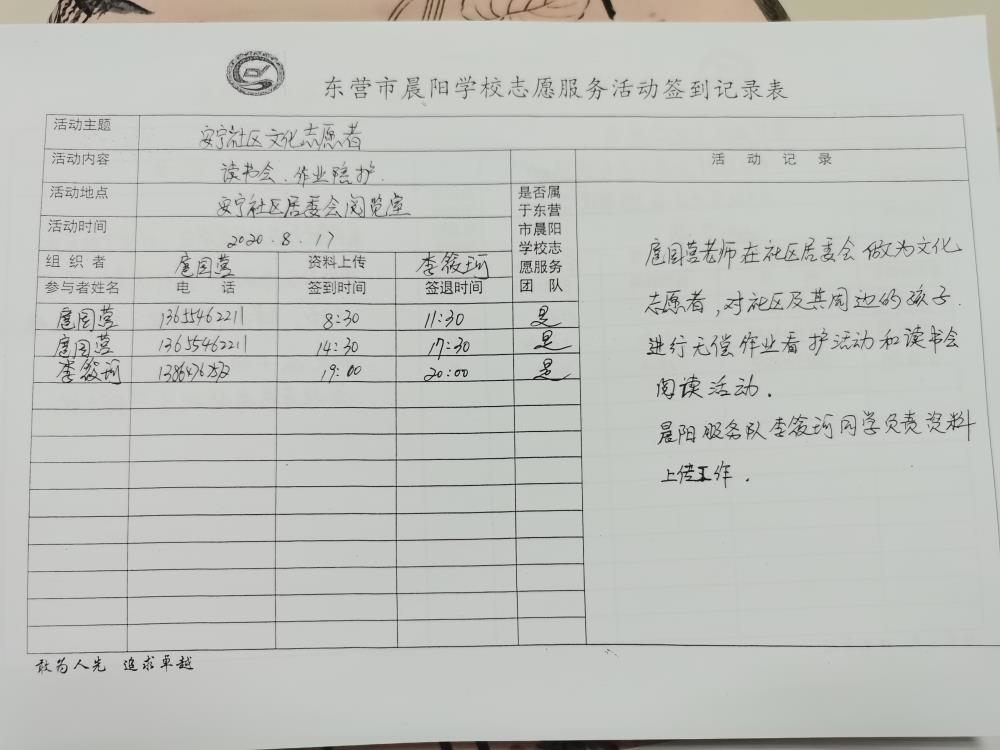 东营市晨阳学校志愿服务活动签到记录表
活动主题 安宁社区文化志愿者
活动内容 读书会、作业陪护.
活动地点 安宁社区居委会阅览室
活动时间 2020.8.17
组织者 扈国营 资料上传 李筱珂
参与者姓名 电话 签到时间 签退时间
是否属
于东营
市晨阳
学校志
愿服务
团队
扈国营 13655462211 8:30 11:30 是
扈国营 13655462211 14:30 17:30 是
李筱珂 19:00 20:00 是
活动记录
扈国营老师在社区居委会做为文化
志愿者,对社区及其周边的孩子.
进行无偿作业看护活动和读书会
阅读活动.
晨阳服务队李筱珂同学负责资料
上传工作.
敢为人先 追求卓越